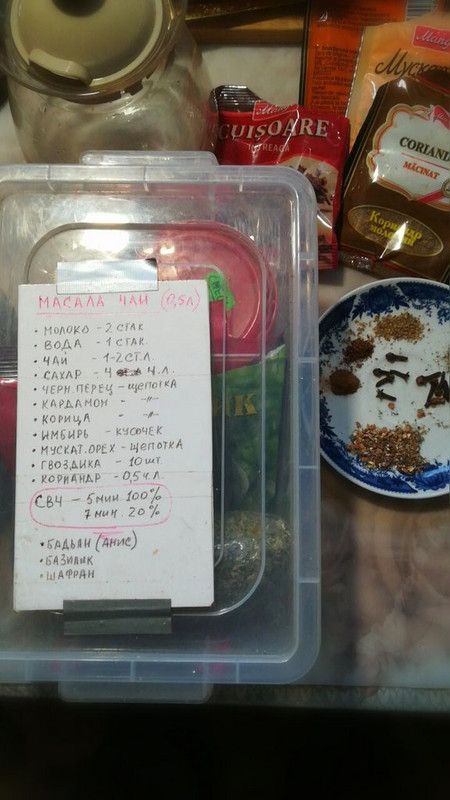 Mang
CUIȘOARE
ÎNTREAGĂ
Mang
Муска
CORIAND
MĂCINAT
Кориандр
молотый
ИК
МАСАЛА ЧАИ (0,5л)
• МОЛОКО - 2 СТАК.
• ВОДА - 1 СТАК.
• ЧАЙ - 1-2 СТ.Л.
• САХАР - 4 Ч.Л.
• ЧЕРН.ПЕРЕЦ - ЩЕПОТКА
• КАРДАМОН -"-
• КОРИЦА -"-
• ИМБИРЬ - КУСОЧЕК
• МУСКАТ.ОРЕХ - ЩЕПОТКА
• ГВОЗДИКА - 10 ШТ.
• КОРИАНДР - 0,5 Ч.Л.
СВЧ - 5 МИН. 100%
7 МИН. 20%
• БАДЬЯН (АНИС)
• БАЗИЛИК
• ШАФРАН